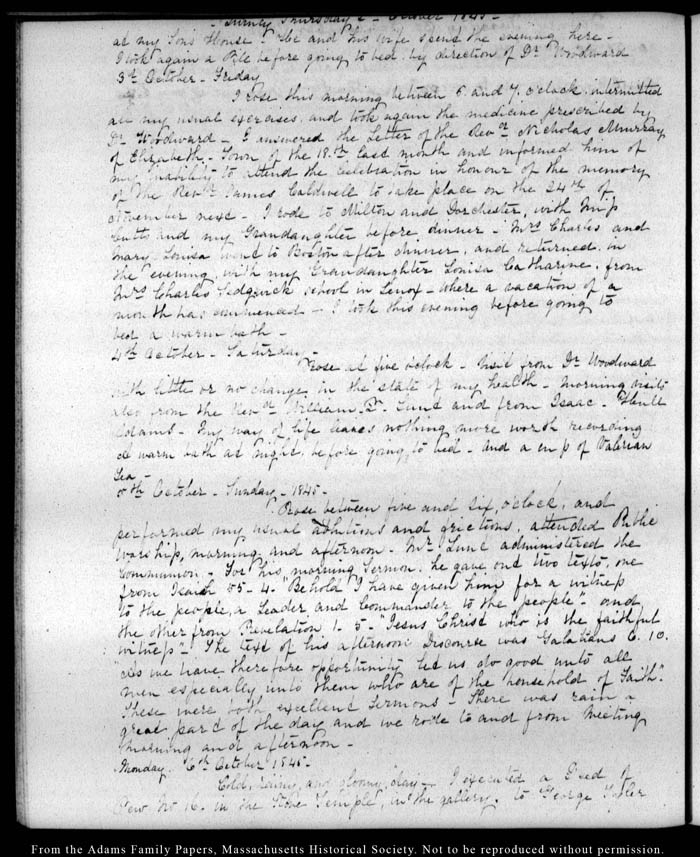 Quincy Thursday 2d October 1845 -
at my Son's House. He and his wife spent the evening here -
I took again a Pile before going to bed by direction of Dr Woodward
3d October - Friday
I rose this morning between 6 and 7 o'clock, intermitted
all my usual exercises, and took again the medicine prescribed by
Dr Woodward - I answered the Letter of the Revd Nicholas Murray
of Elizabeth-Town of the 18th last month and informed him of
my inability to attend the celebration in honour of the memory
of the Revd James Caldwell to take place on the 24th of
November next - I rode to Milton and Dorchester, with Miss
Cutts and my Grandaughter before dinner - Mrs Charles and
Mary-Louisa went to Boston after dinner, and returned in
the evening, with my Grandaughter Louisa Catharine, from
Mrs Charles Sedgwick school in Lenox - where a vacation of a
month has commenced - I took this evening before going to
bed a warm bath -
4th October - Saturday -
Rose at five o'clock - Visit from Dr Woodward
with little or no change in the state of my health - Morning visits
also from the Revd William P. Lunt and from Isaac Hull
Adams - My way of life leaves nothing more worth recording
A warm bath at night, before going to bed - and a cup of Valerian
Tea -
5th October - Sunday - 1845 -
Rose between five and six, o'clock, and
performed my usual ablutions and frictions, attended Public
Worship, morning and afternoon - Mr Lunt administered the
Communion - For his morning Sermon, he gave out two texts, one
from Isaiah 55-4 - "Behold I have given him for a witness
to the people, a Leader and Commander to the people" - and
the other from Revelation 1-5 - "Jesus Christ who is the faithful
witness" - The text of his afternoon Discourse was Galatians 6.10.
"As we have therefore opportunity let us do good unto all
men especially unto them who are of the household of Faith".
These were both excellent Sermons - There was rain a
great part of the day and we rode to and from Meeting
morning and afternoon -
Monday 6th October 1845 -
Cold, rainy, and gloomy, day - I executed a Deed of
Pew No 16. in the Stone Temple, in the gallery, to George
From the Adams Family Papers, Massachusetts Historical Society. Not to be reproduced without permission.